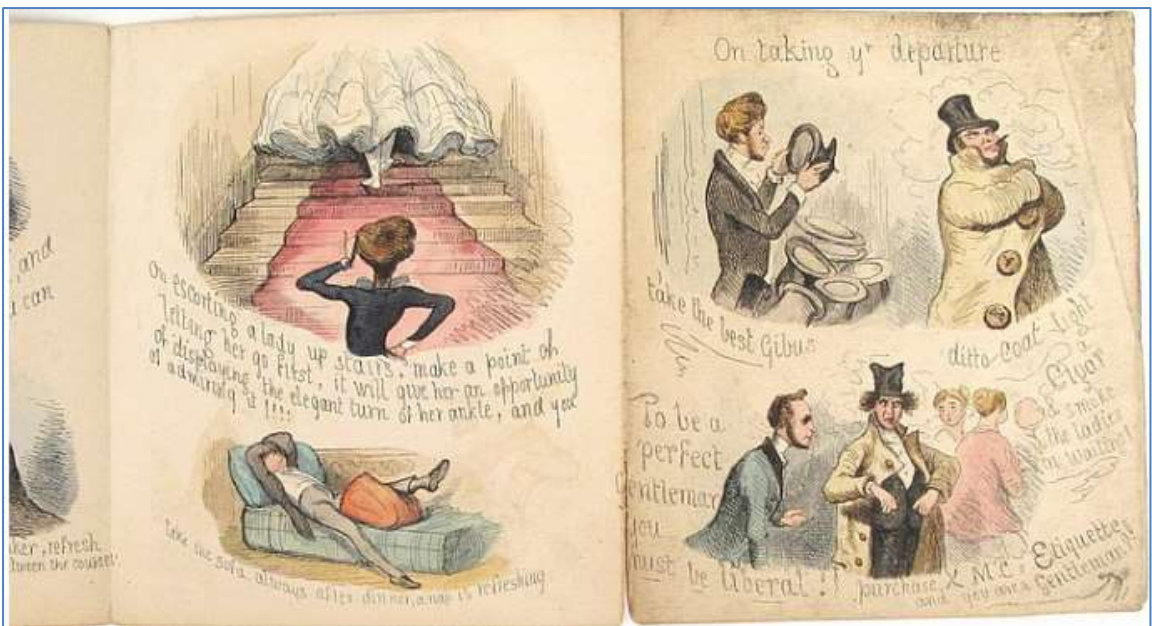 , and
can
ker, refresh
tween the courses!
On escorting a lady up stairs, make a point of
letting her go first, it will give her an opportunity
of displaying the elegant turn of her ankle, and you
of admiring it !!!
take the sofa always after dinner, a nap is refreshing
On taking yr departure
take the best Gibus
ditto coat
light
a
Cigar
& smoke
the ladies
To be a
perfect
Gentleman
you
must be liberal !!
purchase M.C.s Etiquette
and you are a Gentleman!